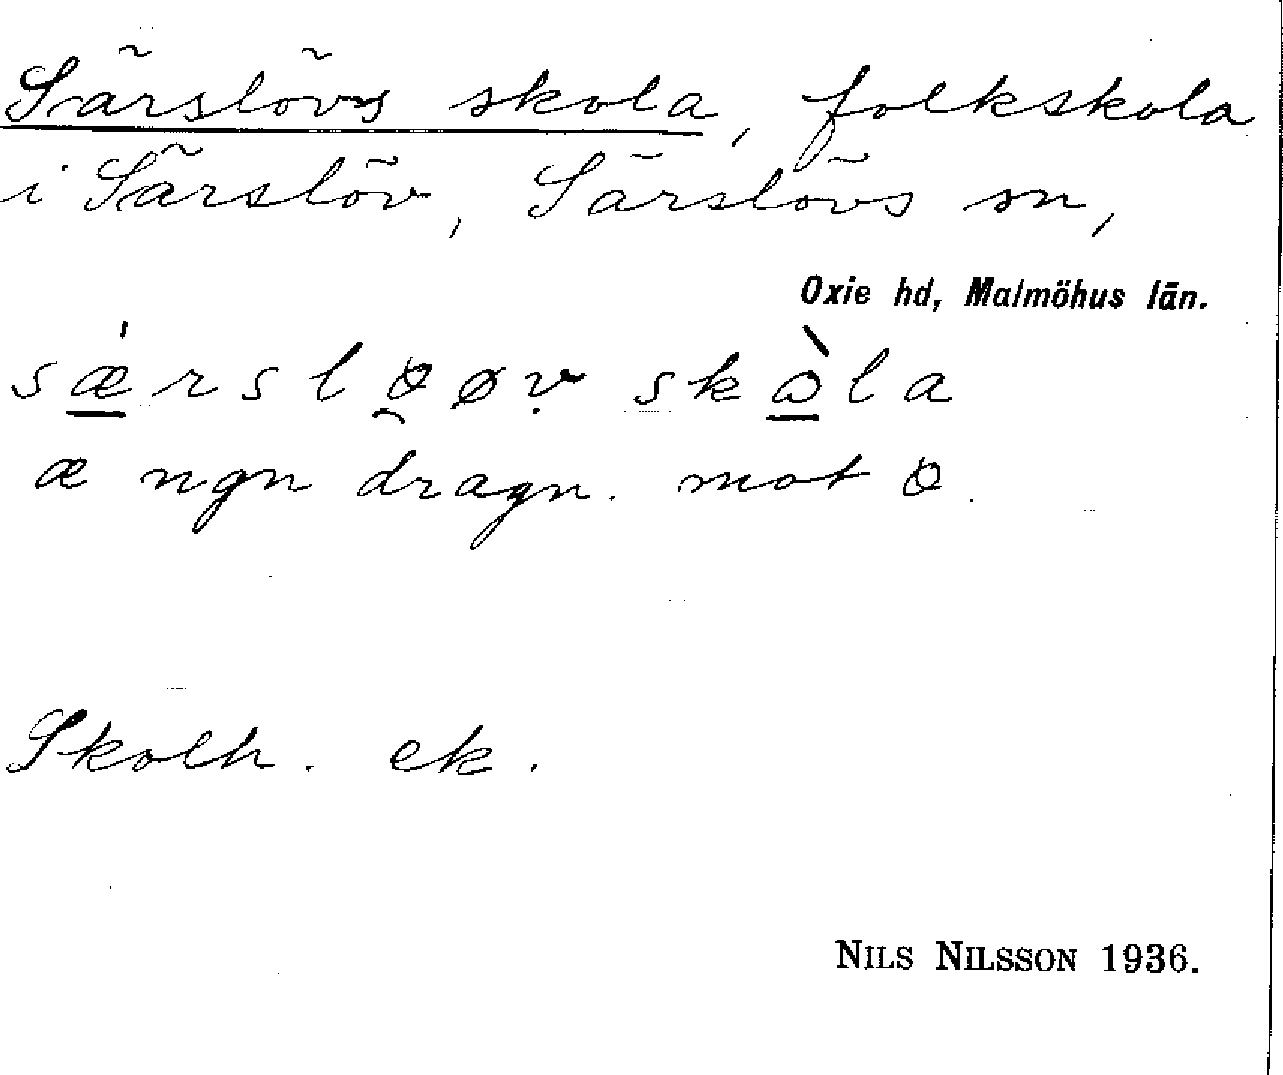 Särslövs skola, folkskola
i Särslöv, Särslövs sn,
Oxie hd, Malmöhus län.
sǽrslöøv skòla
æ ngn dragn. mot ö.
Skolh. ek.
NILS NILSSON 1936.